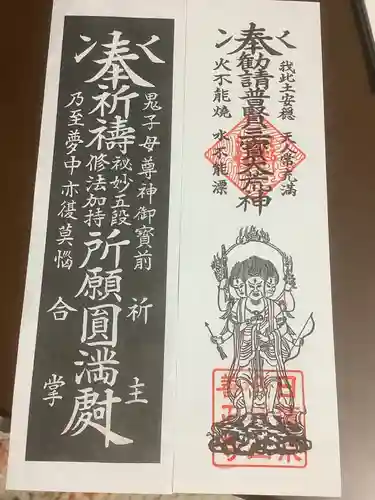 奉勧請普賢三寳大荒神
我此土安穏 天人常充満
火不能燒 水不能漂
奉祈禱
秘妙五段
修法加持
所願圓満尉
鬼子母尊神御寳前
乃至夢中亦復莫惱
祈主
合掌